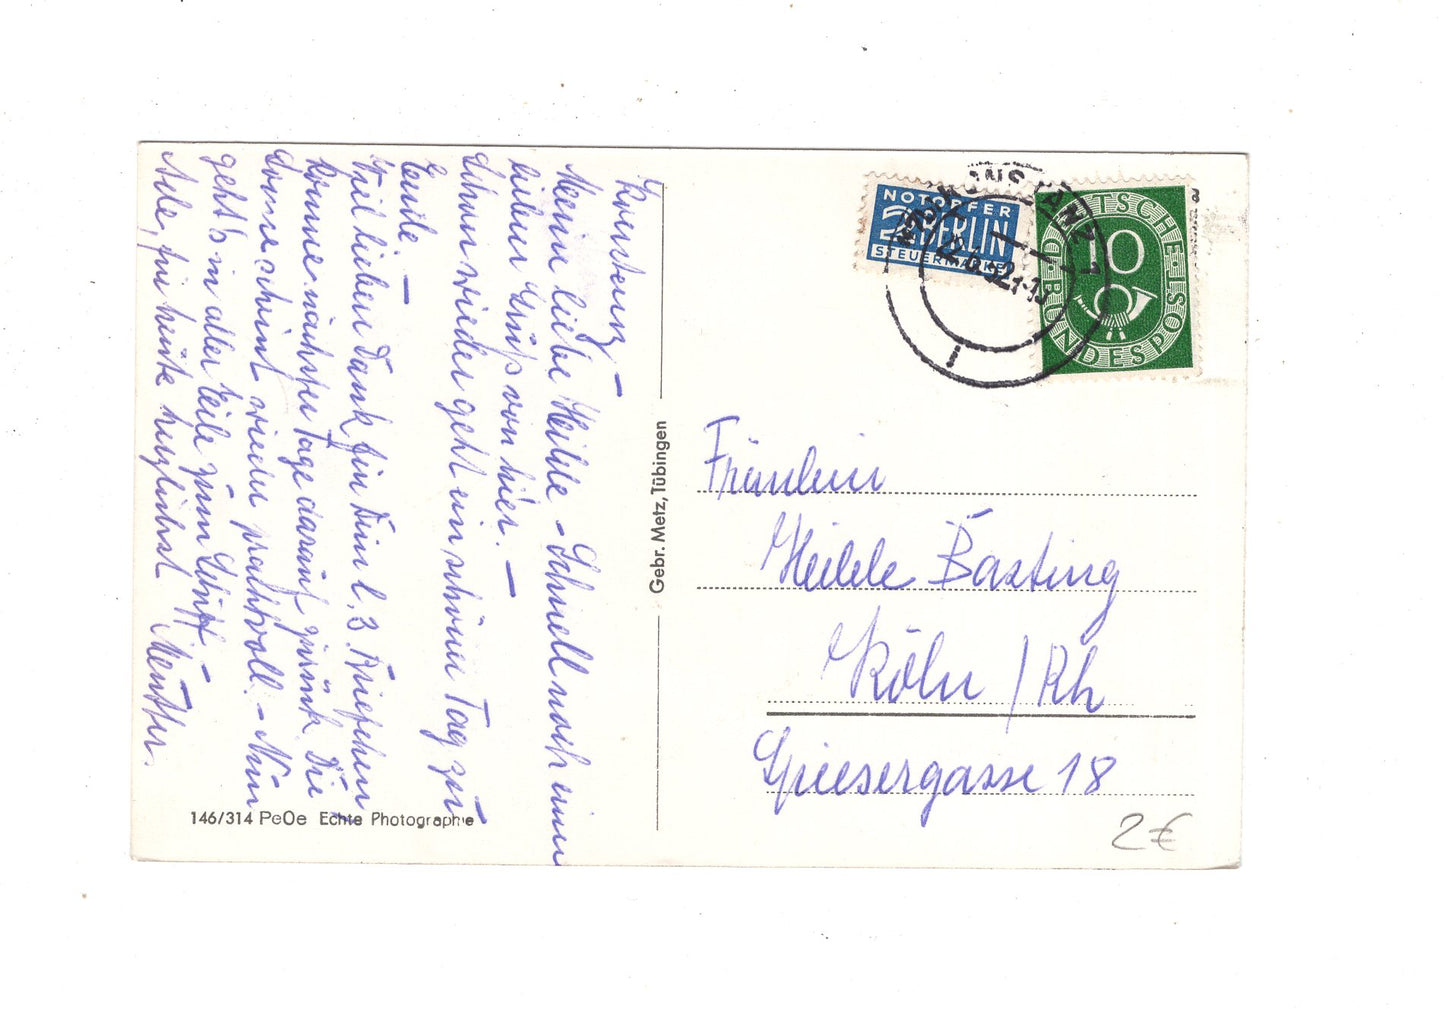 Konstanz –
Meine liebe Heide – Schnell noch einen
lieben Gruß von hier. –
Schon wieder geht ein schöner Tag zu
Ende –
Viel lieben Dank für Dein l. 3. Briefchen
komme nächster Tage darauf zurück. Die
Sonne scheint wieder prachtvoll. – Nun
geht's in aller Eile zum Schiff –
Alle, für heute herzlichst
Gebr. Metz, Tübingen
146/314 PeOe Echte Photographie
NOTOPFER
2 BERLIN
STEUERMARKE
KONSTANZ 1
22.6.52.-1
10
DEUTSCHE BUNDESPOST
Fräulein
Heide Basting
Köln / Rh
Spiesergasse 18
2€